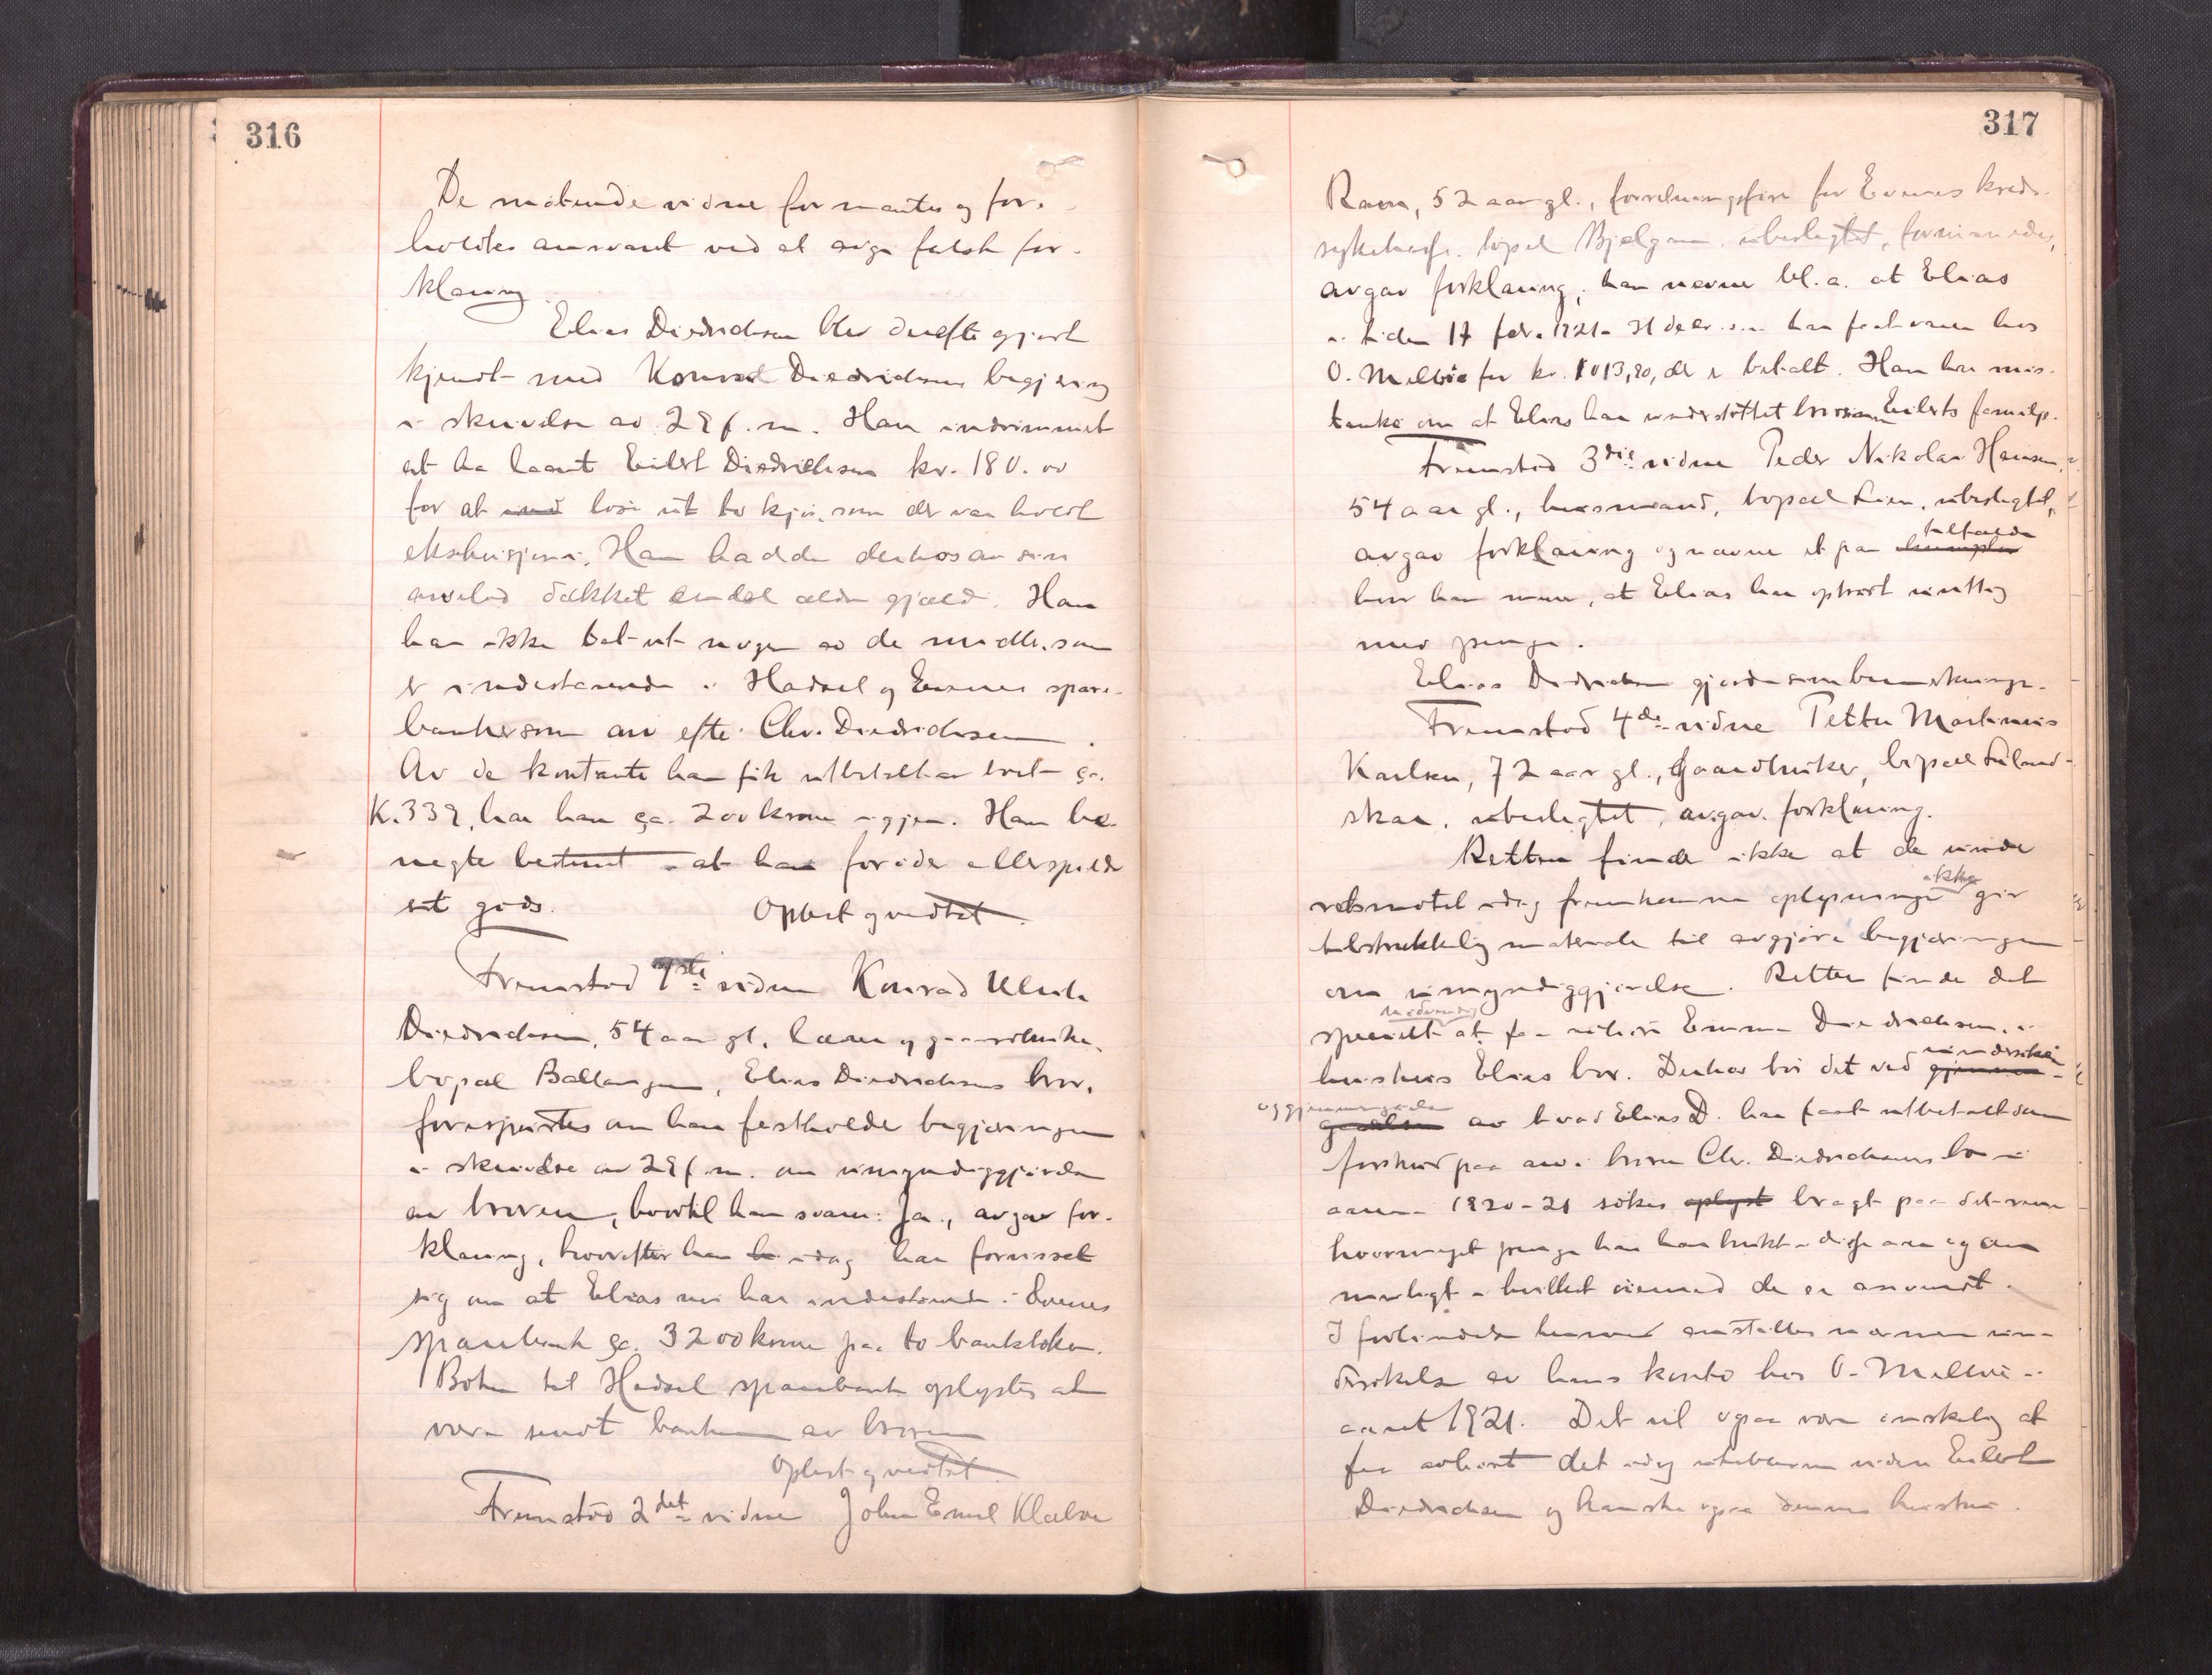 316
De møtende vidne formantes og for-
holdtes ansvaret ved at avgi falsk for-
klaring.
Elias Diedrichsen blev derefter gjort
kjendt med Konrad Diedrichsens begjæring
i skrivelse av 29 f. m. Han indrømmet
at ha laant Eilert Diedrichsen kr. 180.00
for at løse ut to kjør, som der var holdt
eksekusjon i. Han hadde derhos av sin
arvelod dækket endel ældre gjæld. Han
har ikke tat ut nogen av de midler, som
er indestaaende i Hadsel og Evenes spare-
banker som arv efter Chr. Diedrichsen.
Av de kontanter han fik utbetalt av arvet ca.
K. 339, har han ca. 200 krone igjen. Han be-
negter bestemt at han forøder eller spilder
sit gods.
Oplæst og vedtat.
Fremstod 1ste vidne Konrad Ulrik
Diedrichsen, 54 aar gl., lærer og gaardbruker,
bopæl Ballangen, Elias Diedrichsens bror,
forespurtes om han fastholder begjæringen
i skrivelse av 29 f. m. om umyndiggjørelse
av broren, hvortil han svarer: Ja., avgav for-
klaring, hvorefter han idag har forvisset
sig om at Elias nu har indestaaende i Evenes
sparebank ca. 3200 krone paa to bankbøker.
Boken til Hadsel sparebank oplystes at
være sendt banken av broren
Oplæst og vedtat.
Fremstod 2det vidne John Emil Klæboe
317
Ravn, 52 aar gl., forretningsfører for Evenes kreds-
sykekasse. bopæl Bjelgam. ubeslegtet, formanedes,
avgav forklaring; han nævner bl. a. at Elias
i tiden 17 febr. 1921 - 31 decbr. s. a. har faat varer hos
O. Melbøe for kr. 1013,80, der er betalt. Han har mis-
tanke om at Elias har understøttet broren Eilerts familje.
Fremstod 3die vidne Peder Nikolai Hansen,
54 aar gl., husmand, bopæl Lien, ubeslegtet,
avgav forklaring og nævner et par tilfælde
hvor han mener, at Elias har optraadt unyttig
med penge.
Elias Diedrichsen gjorde sine bemerkninger.
Fremstod 4de vidne Petter Martinus
Karlsen, 72 aar gl., gaardbruker, bopæl
skar, ubeslegtet, avgav forklaring.
Retten finder ikke at de under
retsmøtet idag fremkomne oplysninger ikke gir
tilstrækkelig materiale til avgjøre begjæringen
om umyndiggjørelse. Retten finder det
specielt nødvendig at faa avhørt Emma Diedrichsen, i
hvis hus Elias bor. Derhos bør det ved undersøkelse
og gjennemgaaelse av hvad Elias D. har faat utbetalt som
forskud paa arv i broren Chr. Diedrichsens bo i
aarene 1920-21 søkes oplyst bragt paa det rene
hvormeget penge han har brukt i disse aar og om
muligt i hvilket øiemed de er anvendt.
I forbindelse hermed anstilles nærmere un-
dersøkelse av hans konto hos O. Melbøe i
aaret 1921. Det vil ogsaa være ønskelig at
faa avhørt det idag uteblevne vidne Eilert
Diedrichsen og kanske ogsaa dennes hustru.